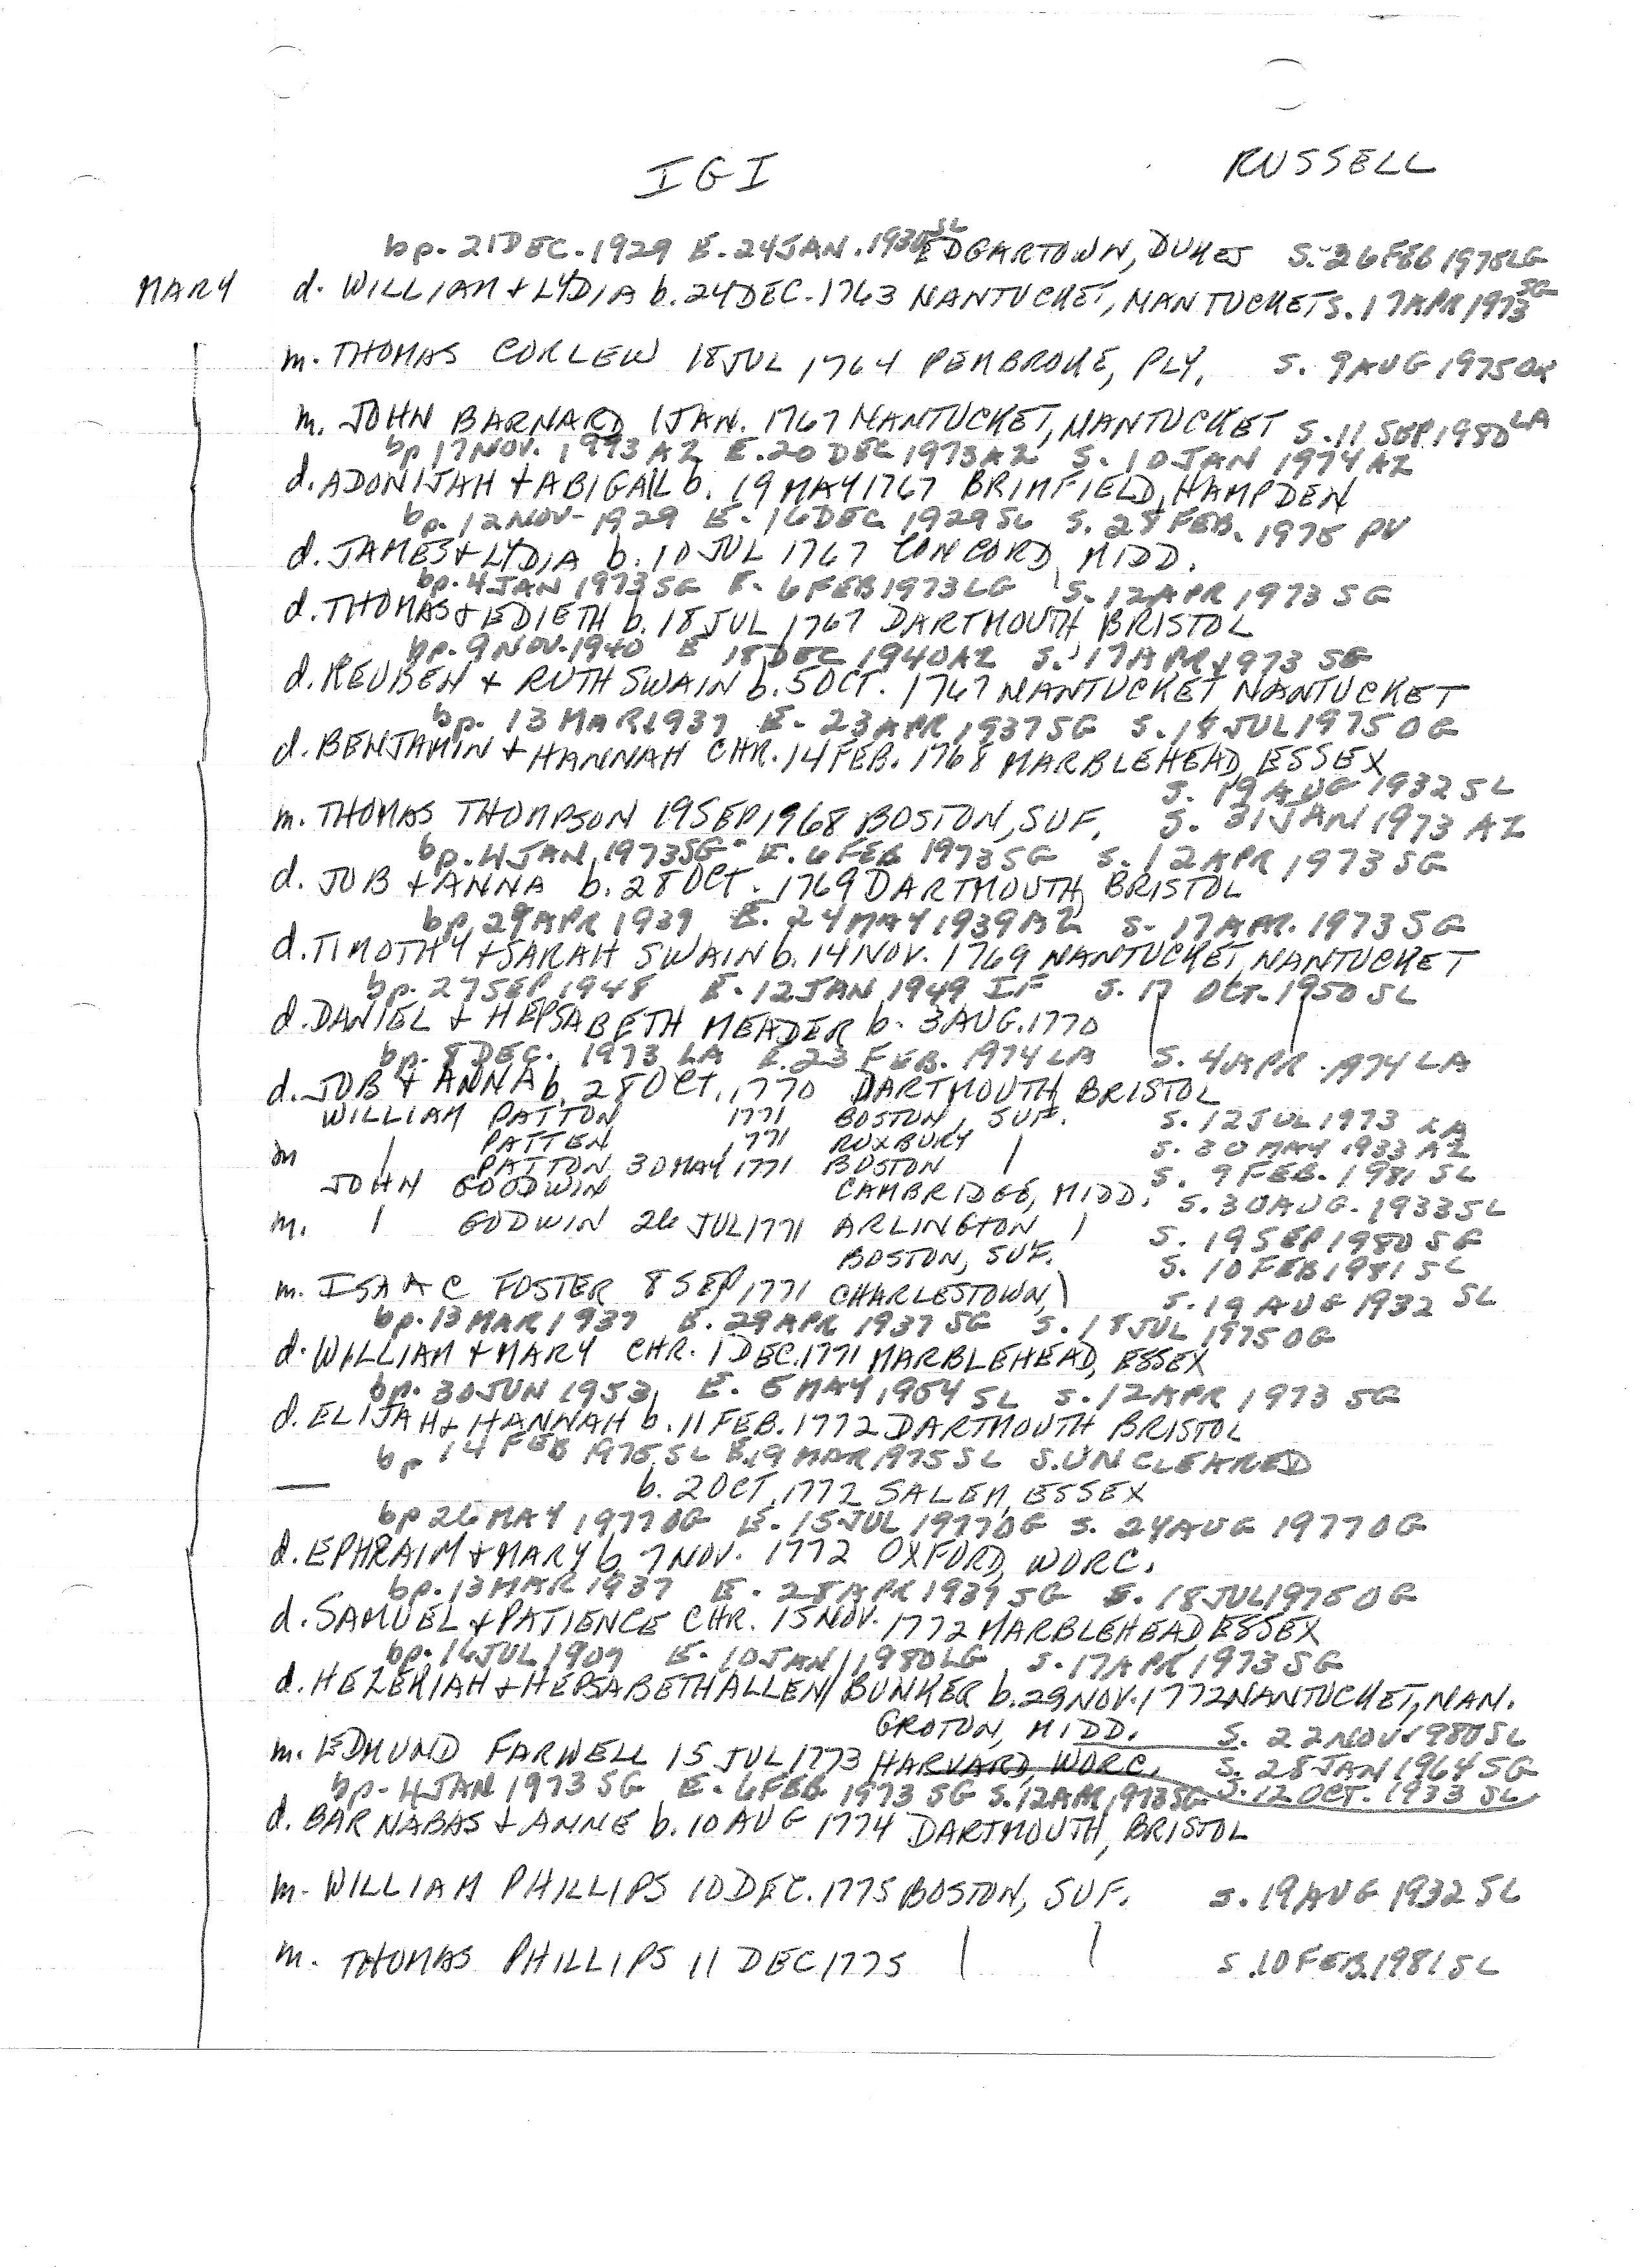 IGI RUSSELL
bp. 21 DEC. 1929 E. 24 JAN. 1930 SL EDGARTOWN, DUKES S. 26 FEB 1975 LG
MARY d. WILLIAM + LYDIA b. 24 DEC. 1763 NANTUCKET, NANTUCKET S. 17 APR 1973 SG
m. THOMAS CORLEW 18 JUL 1764 PEMBROKE, PLY. S. 9 AUG 1975 OK
m. JOHN BARNARD 1 JAN. 1767 NANTUCKET, NANTUCKET S. 11 SEP 1980 LA
bp 17 NOV. 1973 AZ E. 20 DEC 1973 AZ S. 10 JAN 1974 AZ
d. ADONIJAH + ABIGAIL b. 19 MAY 1767 BRIMFIELD, HAMPDEN
bp. 12 NOV- 1929 E. 16 DEC 1929 SL S. 28 FEB. 1975 PV
d. JAMES + LYDIA b. 10 JUL 1767 CONCORD, MIDD.
bp. 4 JAN 1973 SG E. 6 FEB 1973 LG S. 12 APR 1973 SG
d. THOMAS + EDIETH b. 18 JUL 1767 DARTMOUTH, BRISTOL
bp. 9 NOV. 1940 E 18 DEC 1940 AZ S. 17 APR 1973 SG
d. REUBEN + RUTH SWAIN b. 5 OCT. 1767 NANTUCKET, NANTUCKET
bp. 13 MAR 1937 E. 23 APR 1937 SG S. 18 JUL 1975 OG
d. BENJAMIN + HANNAH CHR. 14 FEB. 1768 MARBLEHEAD, ESSEX
S. 19 AUG 1932 SL
m. THOMAS THOMPSON 19 SEP 1968 BOSTON, SUF. S. 31 JAN 1973 AZ
bp. 4 JAN 1973 SG E. 6 FEB 1973 SG S. 12 APR 1973 SG
d. JOB + ANNA b. 28 OCT. 1769 DARTMOUTH, BRISTOL
bp. 29 APR 1939 E. 24 MAY 1939 AZ S. 17 APR. 1973 SG
d. TIMOTHY + SARAH SWAIN b. 14 NOV. 1769 NANTUCKET, NANTUCKET
bp. 27 SEP 1948 E. 12 JAN 1949 IF S. 17 OCT. 1950 SL
d. DANIEL + HEPSABETH MEADER b. 3 AUG. 1770
bp. 8 DEC. 1973 LA E. 23 FEB. 1974 LA S. 4 APR. 1974 LA
d. JOB + ANNA b. 28 OCT. 1770 DARTMOUTH, BRISTOL
WILLIAM PATTON 1771 BOSTON, SUF. S. 12 JUL 1973 LA
m PATTEN 1771 ROXBURY S. 30 MAY 1933 AZ
PATTON 30 MAY 1771 BOSTON S. 9 FEB. 1981 SL
JOHN GOODWIN CAMBRIDGE, MIDD. S. 30 AUG. 1933 SL
m. GODWIN 26 JUL 1771 ARLINGTON S. 19 SEP 1980 SG
BOSTON, SUF. S. 10 FEB 1981 SL
m. ISAAC FOSTER 8 SEP 1771 CHARLESTOWN, S. 19 AUG 1932 SL
bp. 13 MAR 1937 E. 29 APR 1937 SG S. 18 JUL 1975 OG
d. WILLIAM + MARY CHR. 1 DEC. 1771 MARBLEHEAD, ESSEX
bp. 30 JUN 1953 E. 5 MAY 1954 SL S. 12 APR 1973 SG
d. ELIJAH + HANNAH b. 11 FEB. 1772 DARTMOUTH BRISTOL
bp 14 FEB 1975 SL E. 19 MAR 1975 SL S. UNCLEARED
— b. 2 OCT. 1772 SALEM, ESSEX
bp 26 MAY 1977 OG E. 15 JUL 1977 OG S. 24 AUG 1977 OG
d. EPHRAIM + MARY b 7 NOV. 1772 OXFORD, WORC.
bp. 13 MAR 1937 E. 28 APR 1937 SG S. 18 JUL 1975 OG
d. SAMUEL + PATIENCE CHR. 15 NOV. 1772 MARBLEHEAD, ESSEX
bp. 16 JUL 1907 E. 10 JAN 1980 LG S. 17 APR 1973 SG
d. HEZEKIAH + HEPSABETH ALLEN/BUNKER b. 29 NOV. 1772 NANTUCKET, NAN.
GROTON, MIDD. S. 22 NOV 1980 SL
m. EDMUND FARWELL 15 JUL 1773 HARVARD, WORC. S. 28 JAN 1964 SG
bp. 4 JAN 1973 SG E. 6 FEB. 1973 SG S. 12 APR 1973 SG S. 12 OCT. 1933 SL
d. BARNABAS + ANNE b. 10 AUG 1774 DARTMOUTH, BRISTOL
m. WILLIAM PHILLIPS 10 DEC. 1775 BOSTON, SUF. S. 19 AUG 1932 SL
m. THOMAS PHILLIPS 11 DEC 1775 S. 10 FEB. 1981 SL